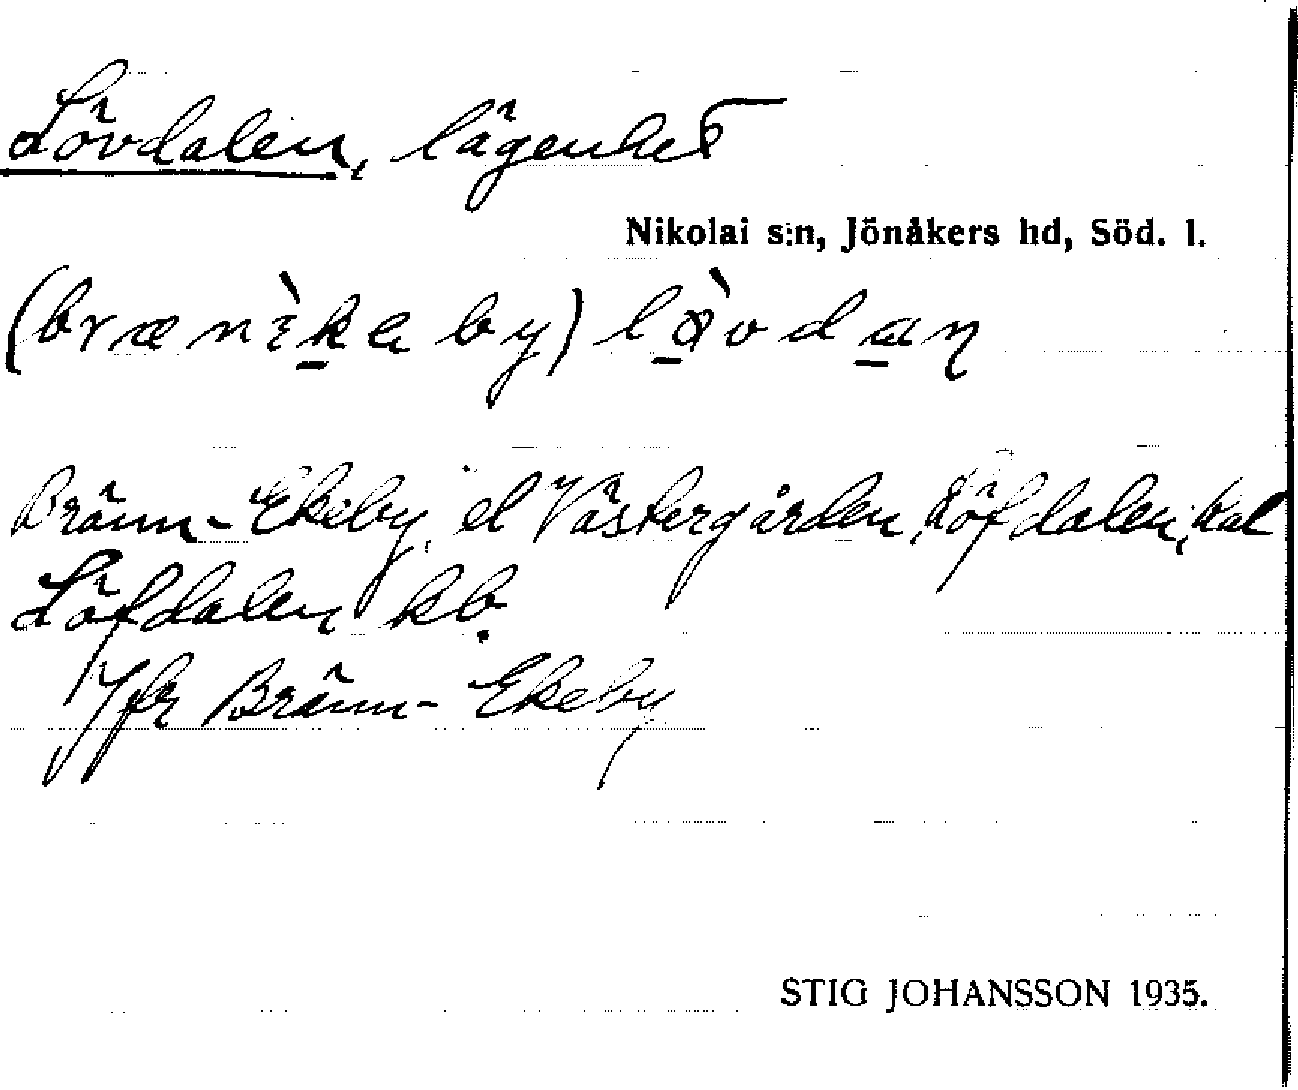 Lövdalen, lägenhet
Nikolai s:n, Jönåkers hd, Söd. l.
(brænὲka by) lø̀vdaɳ
Bränn-Ekeby, el Västergården, Löfdalen, kal
Löfdalen kb.
Jfr Bränn-Ekeby
STIG JOHANSSON 1935.